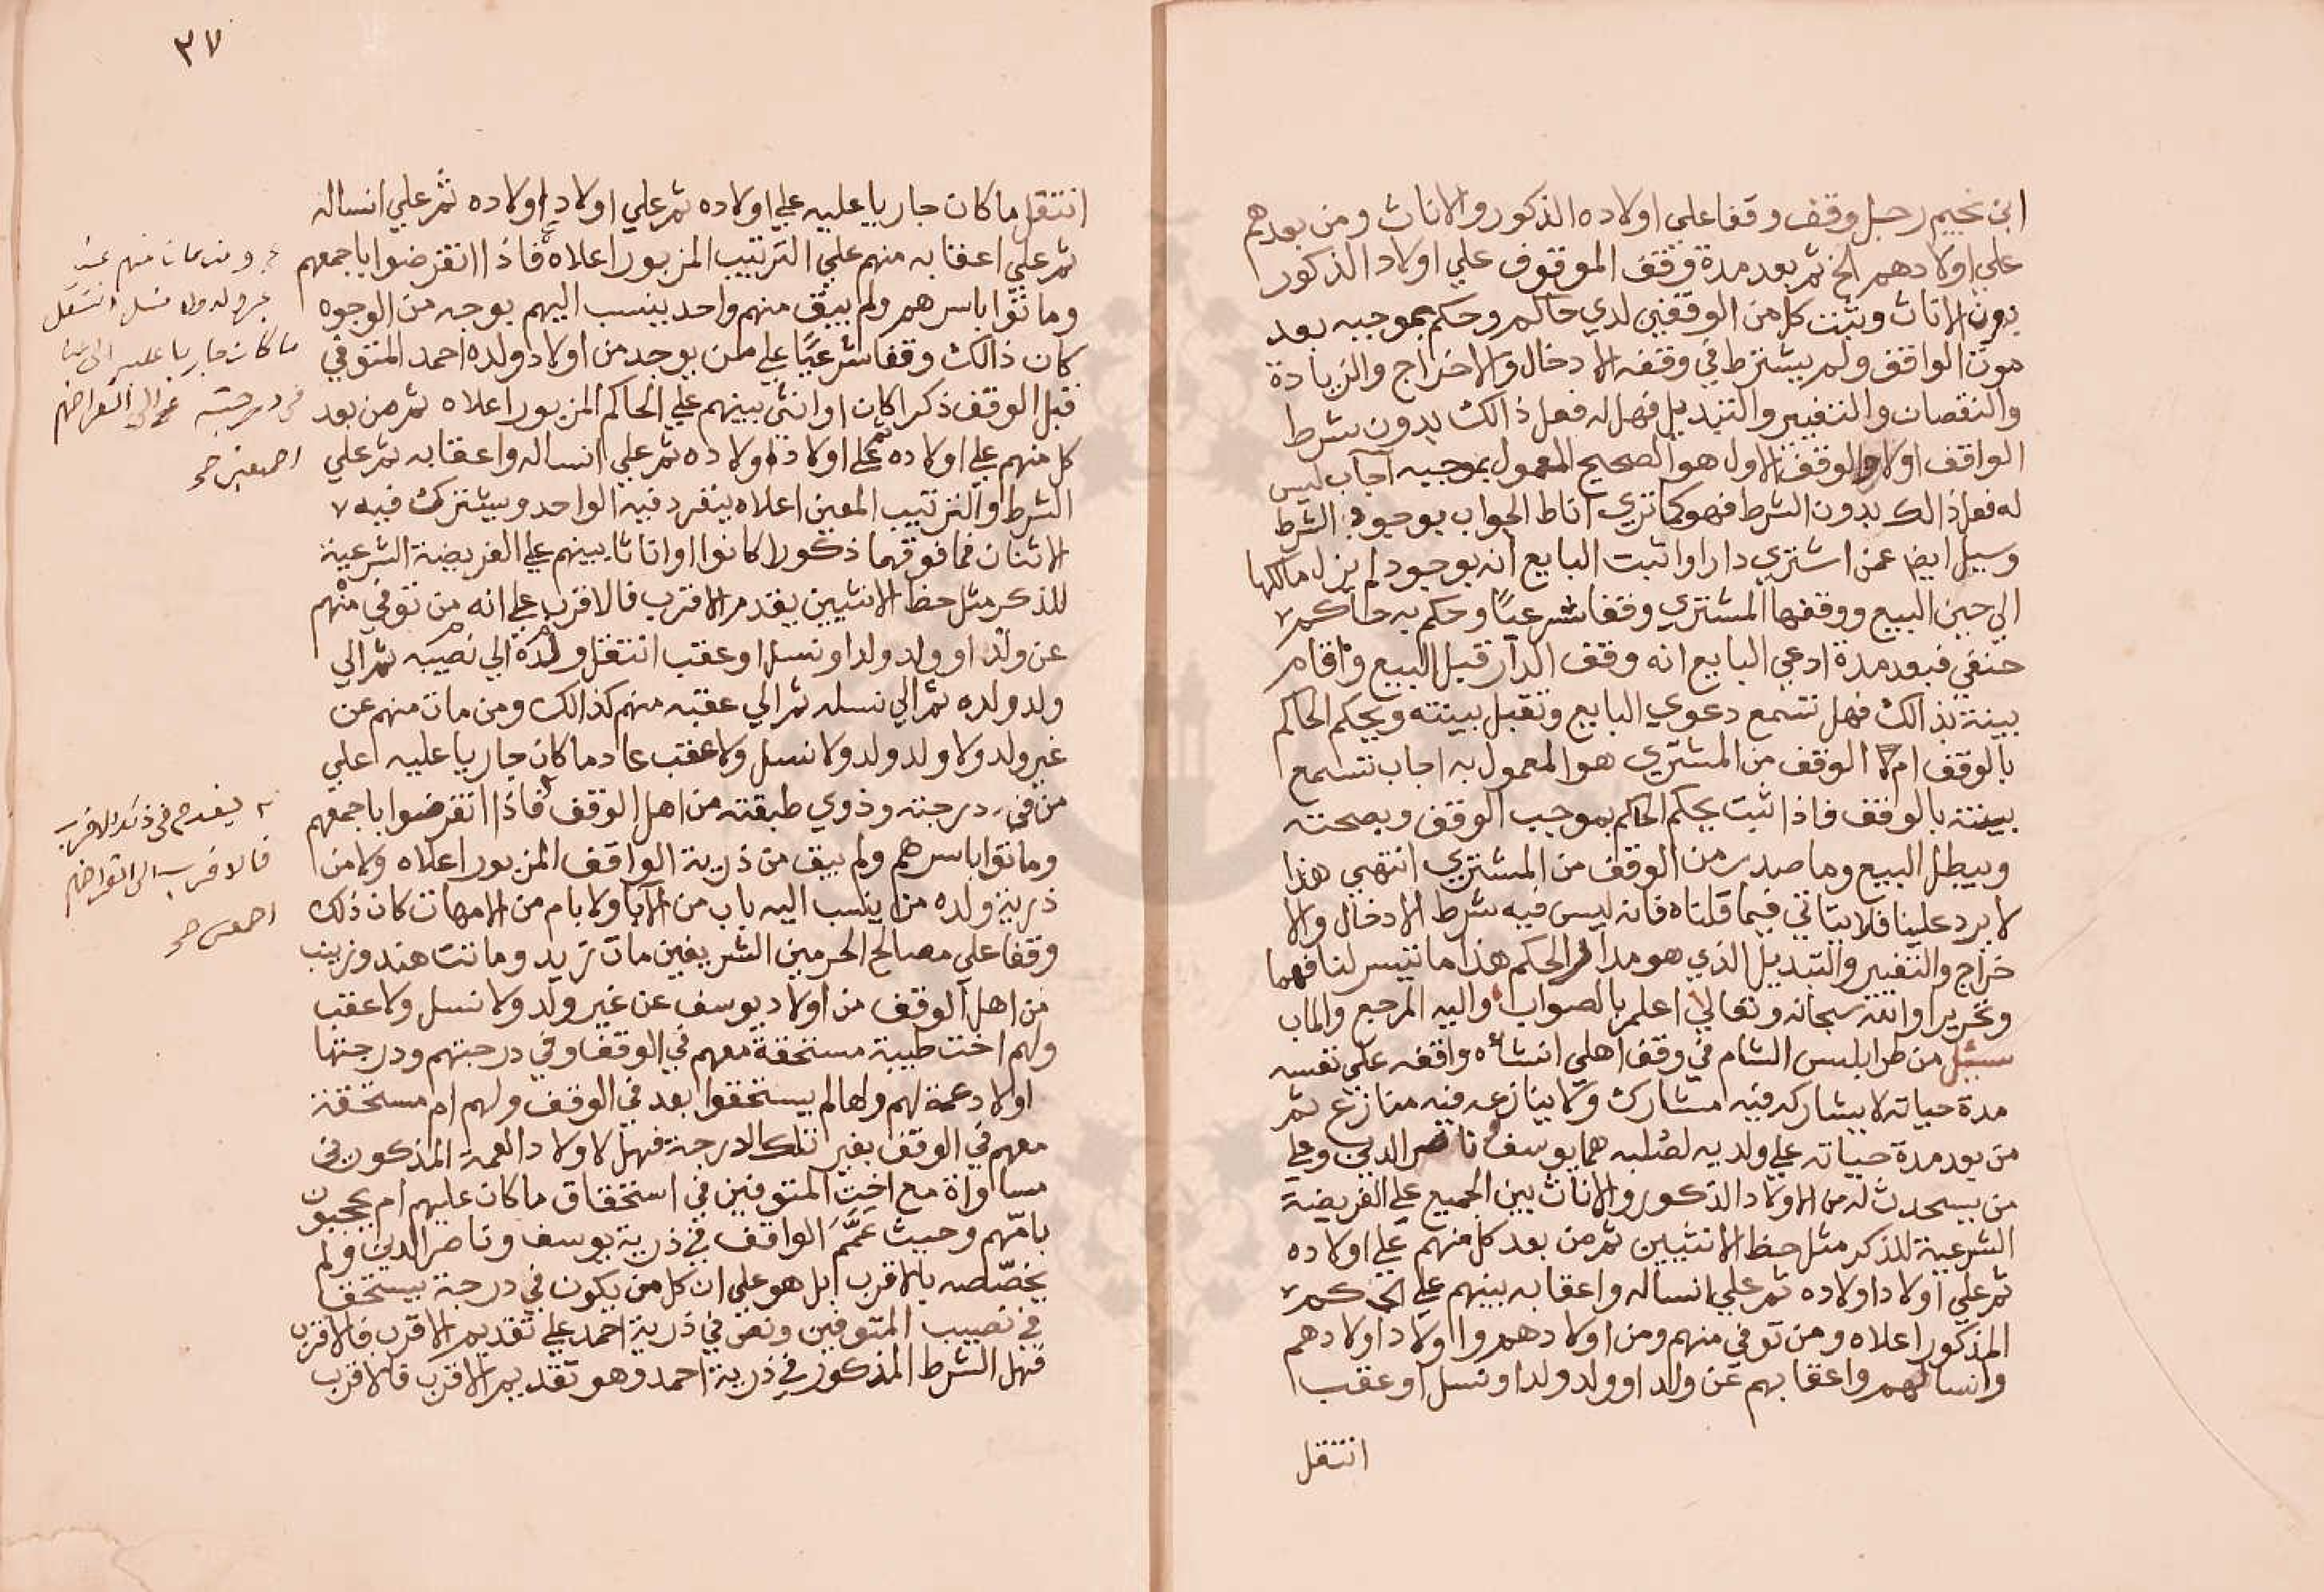 ابن نجيم رجل وقف وقفا علي اولاده الذكور والاناث ومن بعدهم
علي اولادهم الخ ثم بعد مدة وقف الموقوف علي اولاد الذكور
دون الاناث وثبت كل من الوقفين لدي حاكم وحكم بموجبه بعد
موت الواقف ولم يشترط في وقفه الادخال والاخراج والزيادة
والنقصان والتغيير والتبديل فهل له فعل ذالك بدون شرط
الواقف اولا والوقف الاول هو الصحيح المعمول بموجبه اجاب ليس
له فعل ذالك بدون الشرط فهو كما تري اناط الجواب بوجود الشرط
وسيل ايضا عمن اشتري دارا واثبت البايع انه بوجود لم يزل مالكها
الي حين البيع ووقفها المشتري وقفا شرعيا وحكم به حاكم
حنفي فبعد مدة ادعي البايع انه وقف الدار قبل البيع واقام
بينة بذالك فهل تسمع دعوي البايع وتقبل بينته ويحكم الحاكم
بالوقف ام لا الوقف من المشتري هو المعمول به اجاب تسمع
بينته بالوقف فاذا ثبت يحكم الحاكم بموجب الوقف وبصحته
ويبطل البيع وما صدر من الوقف من المشتري انتهي هذا
لا يرد علينا فلا يتاتي فيما قلناه فانه ليس فيه شرط الادخال والا
خراج والتغيير والتبديل الذي هو مدار الحكم هذا ما تيسر لنا فهما
وتحريرا والله سبحانه وتعالي اعلم بالصواب واليه المرجع والماب
سئل من طرابلس الشام في وقف اهلي انشاه واقفه علي نفسه
مدة حياته لا يشاركه فيه مشارك ولا ينازعه فيه منازع ثم
من بعد مدة حياته علي ولديه لصلبه هما يوسف وناصر الدين وعلي
من يسحدث له من الاولاد الذكور والاناث بين الجميع علي الفريضة
الشرعية للذكر مثل حظ الانثيين ثم من بعد كل منهم علي اولاده
ثم علي اولاد اولاده ثم علي انساله واعقابه بينهم علي الحكم
المذكور اعلاه ومن توفي منهم ومن اولادهم واولاد اولادهم
وانسالهم واعقابهم عن ولد او ولد ولد او نسل او عقب
انتقل
٣٧
انتقل ما كان جاريا عليه علي اولاده ثم علي اولاد اولاده ثم علي انساله
ثم علي اعقابه منهم علي الترتيب المزبور اعلاه فاذا انقرضوا باجمعهم
وماتوا باسرهم ولم يبق منهم واحد ينسب اليهم بوجه من الوجوه
كان ذالك وقفا شرعيا علي من يوجد من اولاد ولده احمد المتوفي
قبل الوقف ذكرا كان او انثي بينهم علي الحاكم المزبور اعلاه ثم من بعد
كل منهم علي اولاده ثم علي اولاد اولاده ثم علي انساله واعقابه ثم علي
الشرط والترتيب المعين اعلاه ينفرد فيه الواحد ويشترك فيه
الاثنان فما فوقهما ذكورا كانوا او اناثا بينهم علي الفريضة الشرعية
للذكر مثل حظ الانثيين يقدم الاقرب فالاقرب علي انه من توفي منهم
عن ولد او ولد ولد او نسل او عقب انتقل ولده الي نصيبه ثم الي
ولد ولده ثم الي نسله ثم الي عقبه منهم كذالك ومن مات منهم عن
غير ولد ولا ولد ولد ولا نسل ولا عقب عاد ما كان جاريا عليه اعلي
من في درجته وذوي طبقته من اهل الوقف فاذا انقرضوا باجمعهم
وماتوا باسرهم ولم يبق من ذرية الواقف المزبور اعلاه ولا من
ذرية ولده من ينسب اليه باب من الآبا ولا بام من الامهات كان ذلك
وقفا علي مصالح الحرمين الشريفين مات زيد وماتت هند وزينب
من اهل الوقف من اولاد يوسف عن غير ولد ولا نسل ولا عقب
ولهم اخت طيبة مستحقة معهم في الوقف وفي درجتهم ودرجتها
اولاد عمة لهم ولها لم يستحقوا بعد في الوقف ولهم ام مستحقة
معهم في الوقف بغير تلك الدرجة فهل لاولاد العمة المذكورين
مساواة مع اخت المتوفين في استحقاق ما كان عليهم ام يحجبون
بامّهم وحيث عَمَّمَ الواقف في ذرية يوسف وناصر الدين ولم
يخصّصه بالاقرب بل هو علي ان كل من يكون في درجة يستحق
في نصيب المتوفين ونص في ذرية احمد علي تقديم الاقرب فالاقرب
فهل الشرط المذكور في ذرية احمد وهو تقديم الاقرب فالاقرب
ومن مات منهم عن غير
ولد ولا نسل انتقل
ما كان جاريا عليه الي من
في درجته ثم الي انقراضهم
اجمعين صح
يقدم في ذلك الاقرب
فالاقرب الي انقراضهم
اجمعين صح